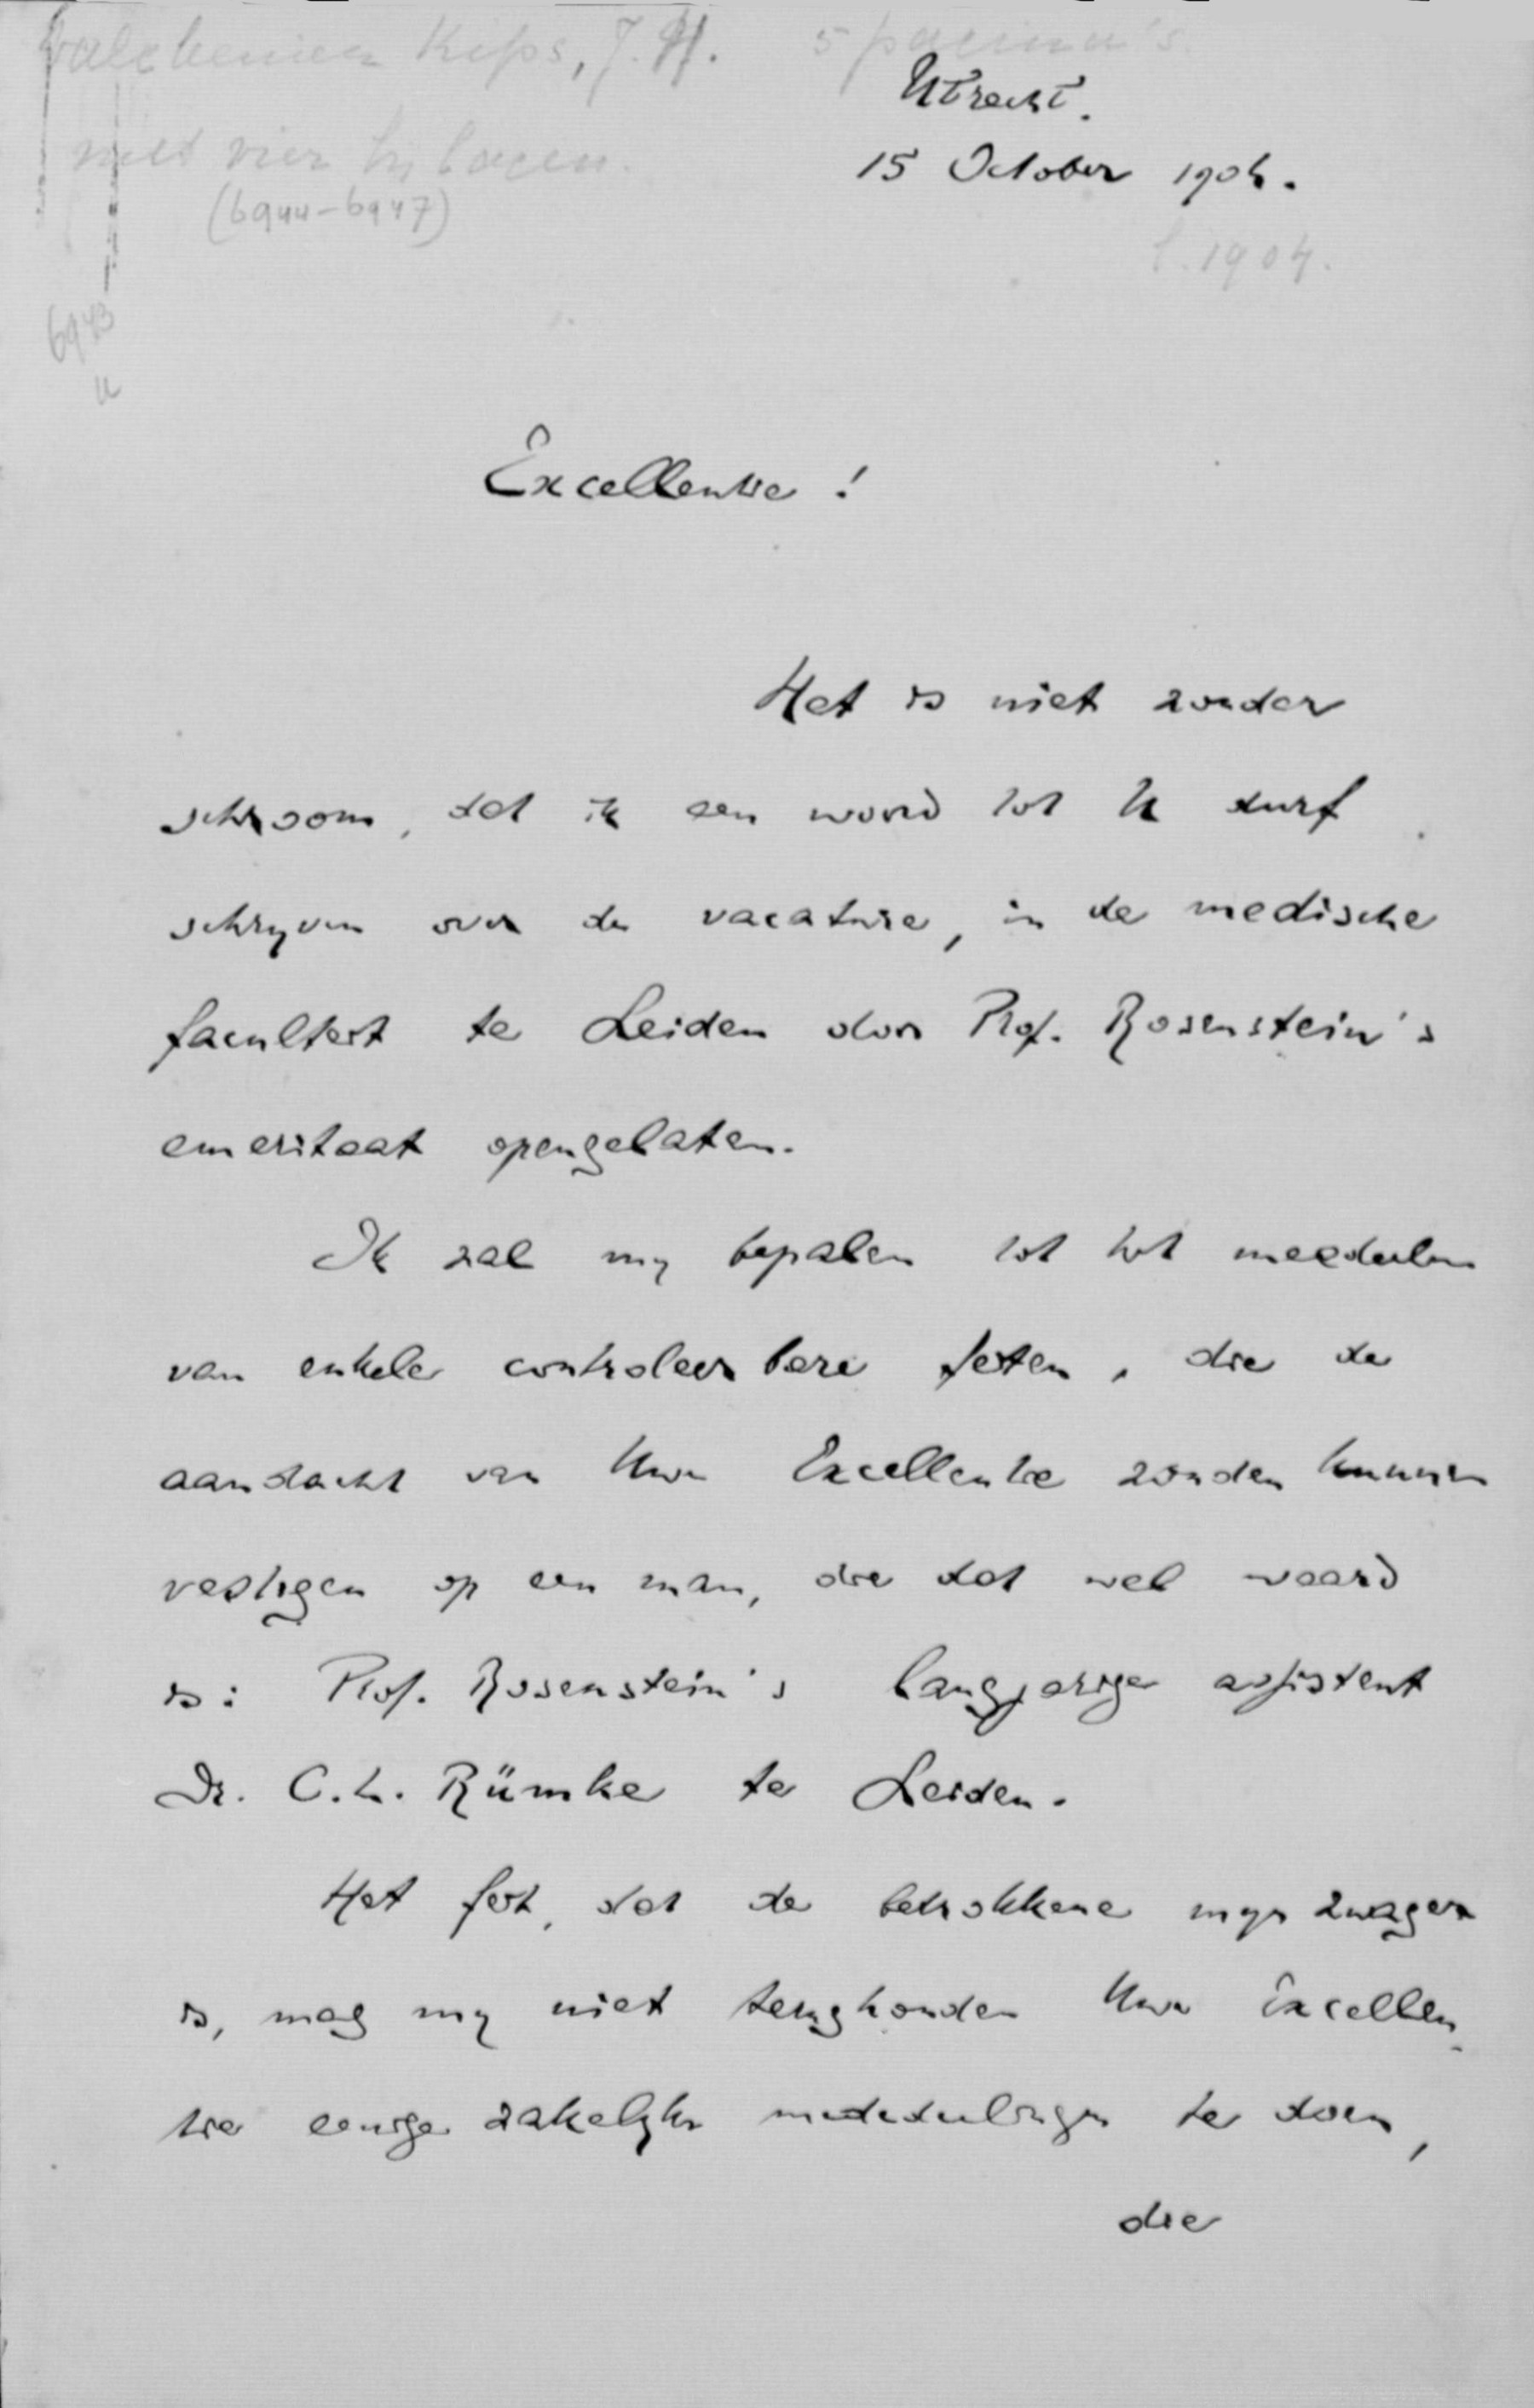 Kips, J.H. 5 pagina's.
Utrecht.
met vier bijlagen.
15 October 1904.
(6944-6947)
1904.
6943
Excellentie!
Het is niet zonder
schroom, dat ik een woord tot U durf
schrijven over de vacature, in de medische
faculteit te Leiden door Prof. Rosenstein's
emeritaat opengelaten.
Ik zal mij bepalen tot het meedeelen
van enkele controleerbare feiten, die de
aandacht van Uwe Excellentie zouden kunnen
vestigen op een man, die dat wel waard
is: Prof. Rosenstein's langjarige assistent
Dr. C.L. Rümke te Leiden.
Het feit, dat de betrokkene mijn zwager
is, mag mij niet terughouden Uwe Excellen-
tie eenige zakelijke mededeelingen te doen,
die